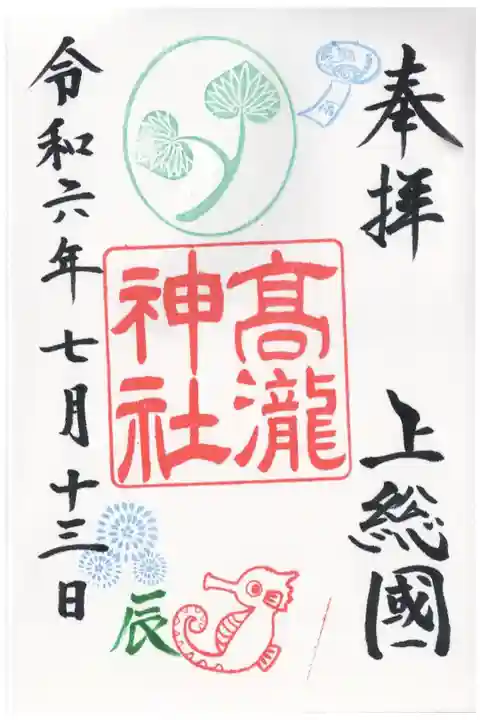 奉拝　上総國
髙瀧
神社
辰
令和六年七月十三日